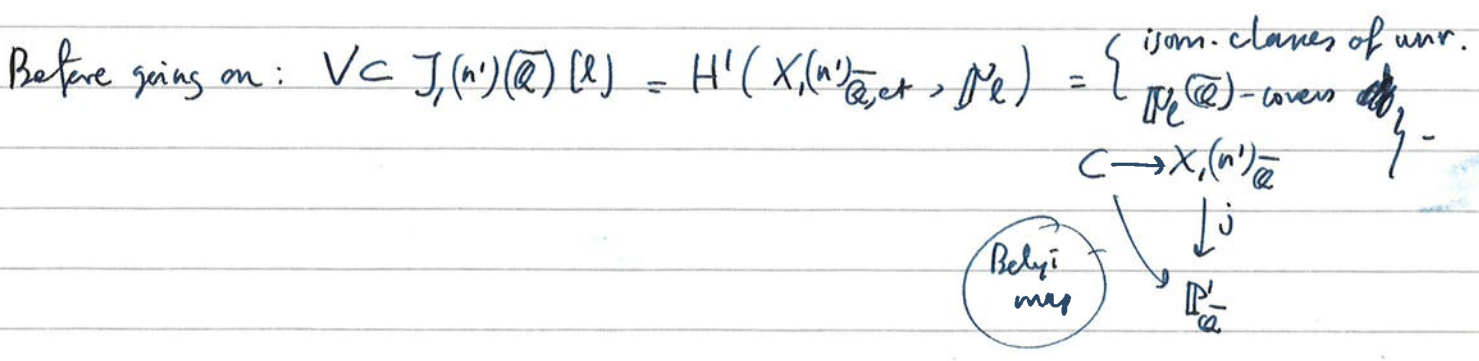 Before going on: V ⊂ J₁(n')(Q̄)[ℓ] = H¹(X₁(n')_{Q̄,et}, μ_ℓ) = { isom. classes of unr.
μ_ℓ(Q̄)-covers } .
C → X₁(n')_{Q̄}
↓ j
Belyi
map
P¹_{Q̄}